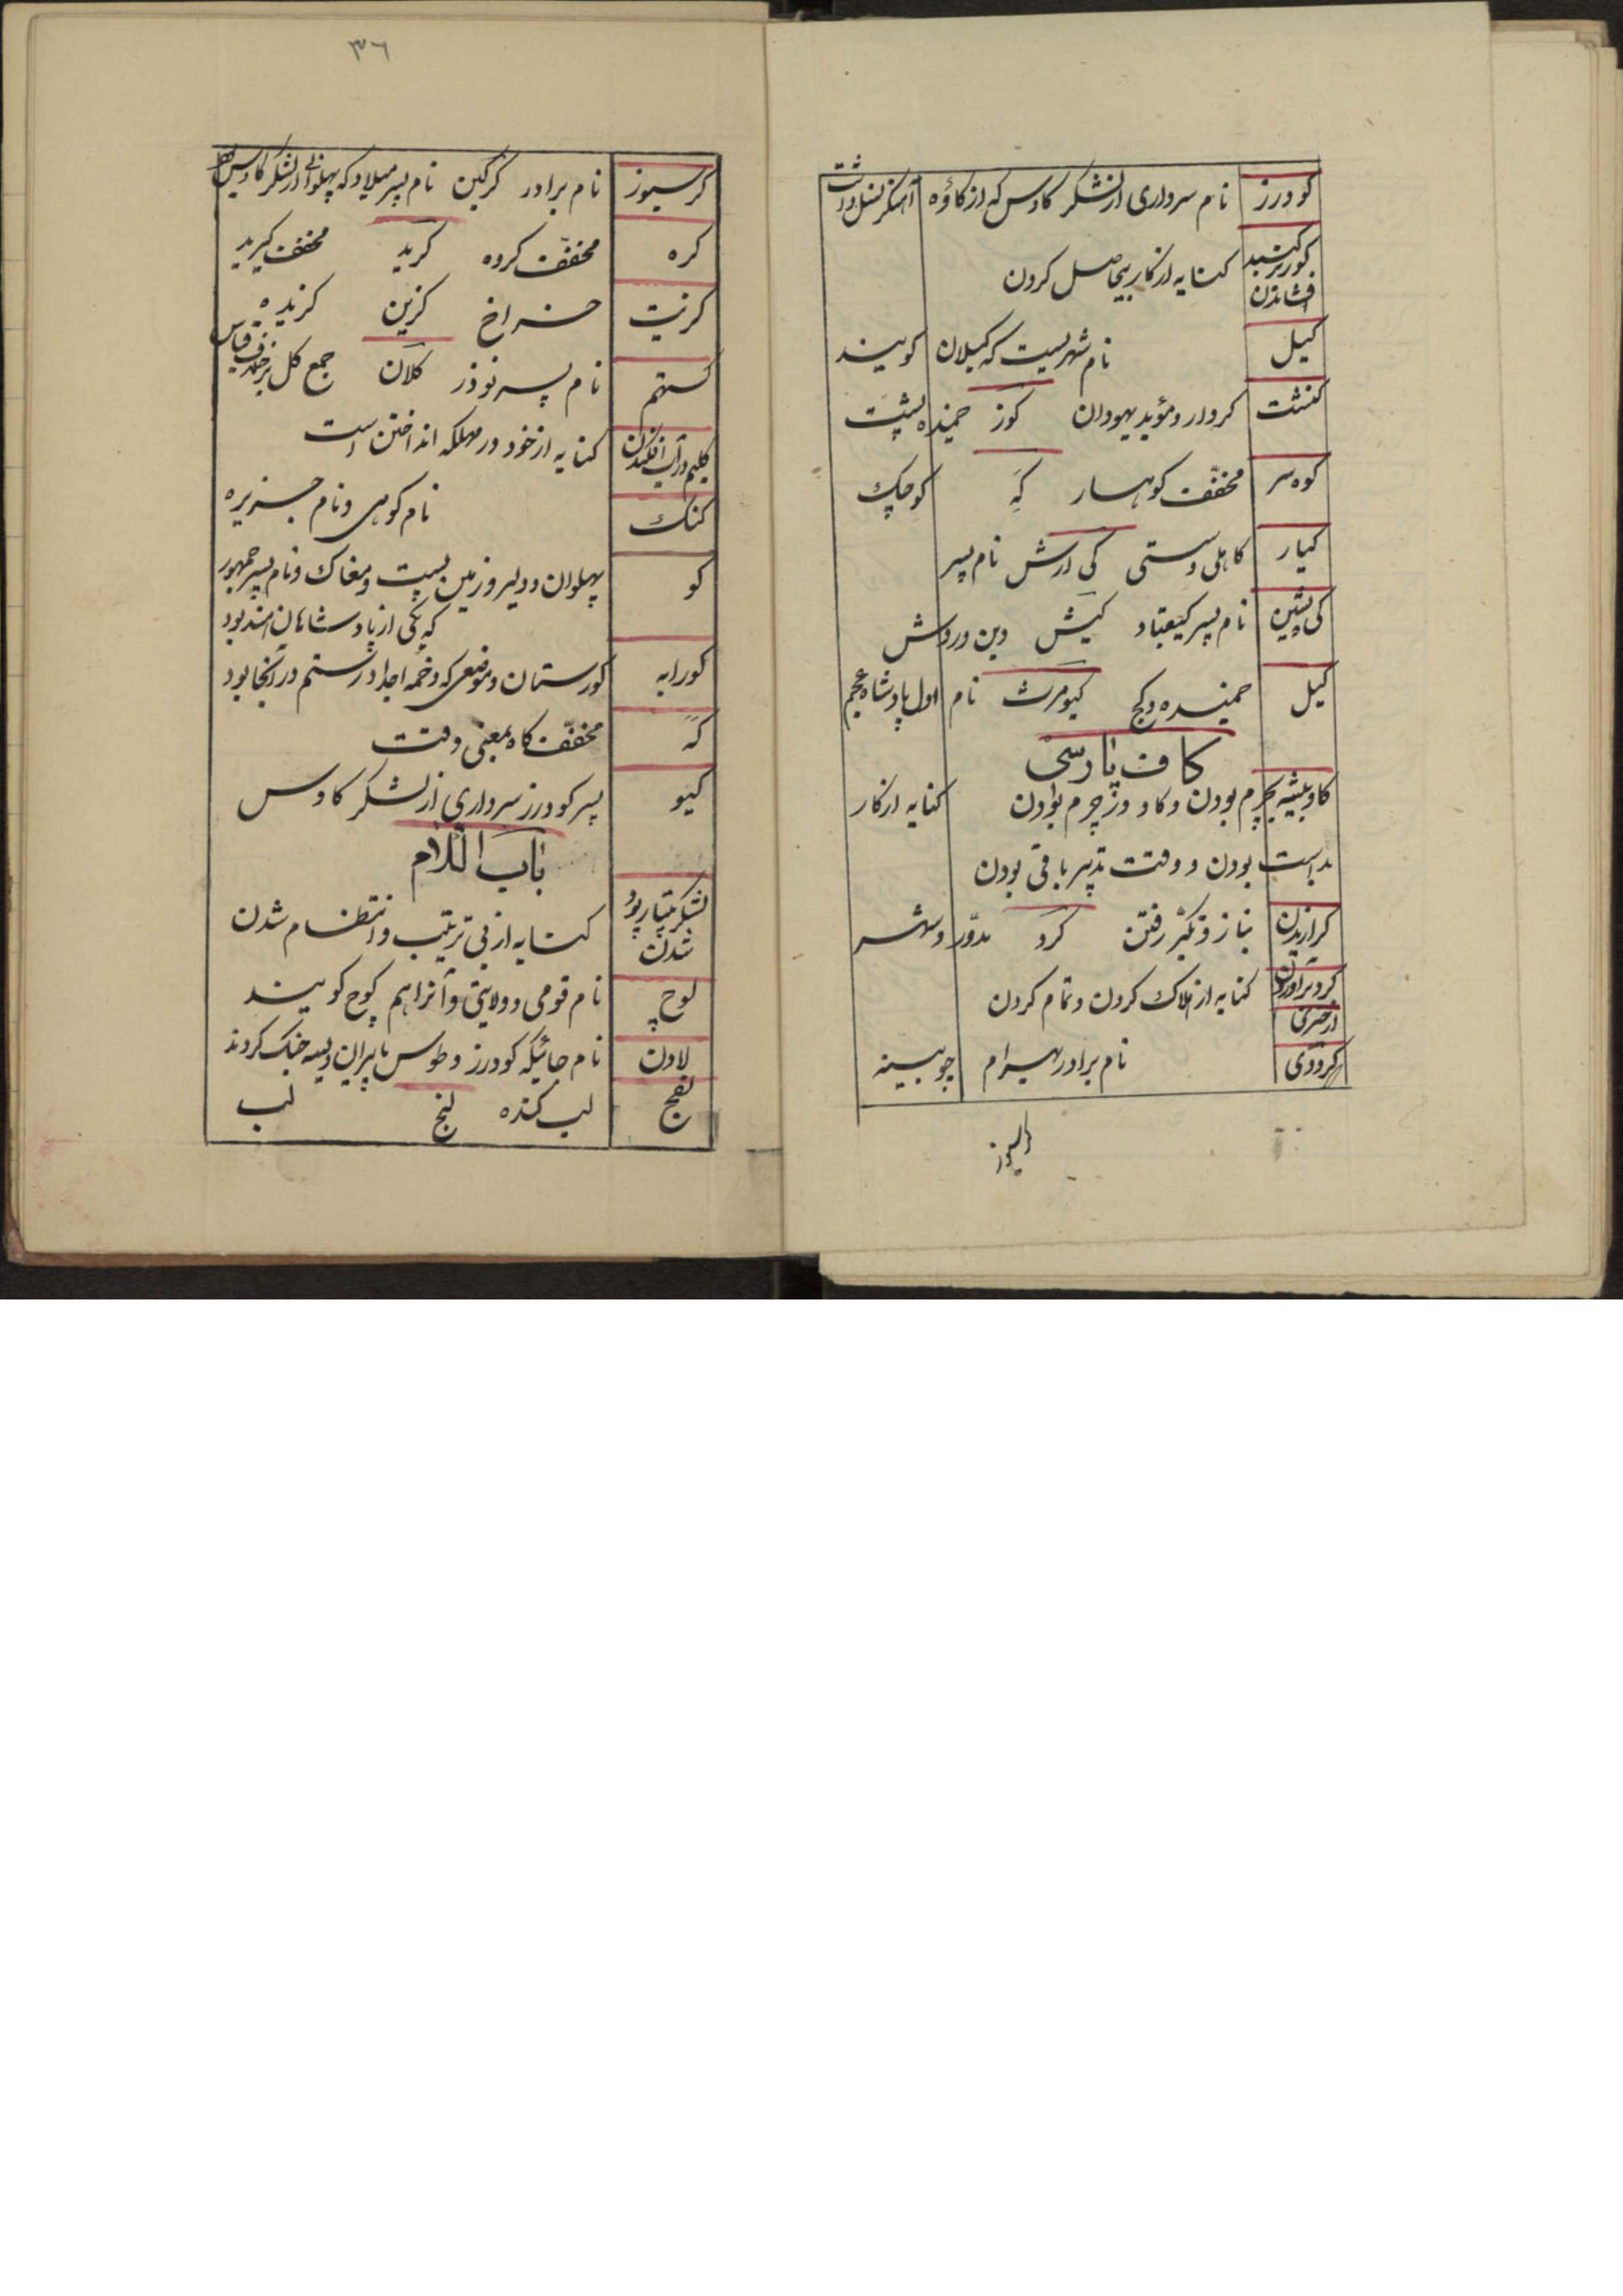 کودرز نام سرداری از لشکر کاوس که از کاوه آهنگر نسل داشت
کوز بر کنبد افشاندن کنایه از کار بیحاصل کردن
کیل نام شهریست که کیلان کویند
کنشت کردار و مؤبد یهودان کوز خمیده پشت
کوه سر مخفّف کوهسار کِه کوچک
کیار کاهلی و سستی کی ارش نام پسر
کی پشین نام پسر کیقباد کیش دین و روش
کیل خمیده و کج کیومرث نام اول پادشاه عجم
کاف پارسی
کاو بیشه بچرم بودن و کاو ور چرم بودن کنایه از کار
بداست بودن و وقت تدبیر باقی بودن
کرازیدن بناز و تکبّر رفتن کرد مدوّر و شهر
کرد برآوردن از چیزی کنایه از هلاک کردن و تمام کردن
کردوی نام برادر بهرام چوبینه
۳٦
کرسیوز نام برادر کرکین نام پسر میلاد که پهلوانی از لشکر کاوس
کره مخفّف کروه کرید مخفّف کیرید
کزیت خراخ کزین کزیده
کستهم نام پسر نوذر کلان جمع کل بر خلاف قیاس
کلیم در آب افکندن کنایه از خود در مهلکه انداختن است
کنک نام کوهی و نام جزیره
کو پهلوان و دلیر و زمین پست و مغاک و نام پسر جمهور
که یکی از پادشاهان هند بود
کورابه کورستان و موضعی که دخمه اجداد رستم در آنجا بود
کَه مخفّف کاه بمعنی وقت
کیو پسر کودرز سرداری از لشکر کاوس
باب اللام
لشکر بیتار پود شدن کنایه از بی ترتیب و انتظام شدن
لوچ نام قومی و ولایتی و آنرا هم کوچ کویند
لادن نام جائیکه کودرز و طوس با پیران ویسه جنک کردند
لفج لب کنده لنج لب